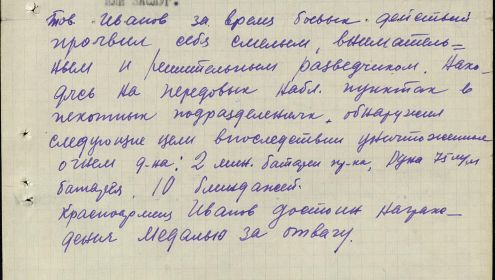 или заслуг.
Тов. Иванов за время боевых действий
проявил себя смелым, вниматель=
ным и решительным разведчиком. Нахо-
дясь на передовых набл. пунктах в
пехотных подразделениях, обнаружил
следующие цели впоследствии уничтоженные
огнем д-на: 2 мин. батареи пр-ка, 75 м/м
батарея, 10 блиндажей.
Красноармеец Иванов достоин награж-
дения Медалью за отвагу.